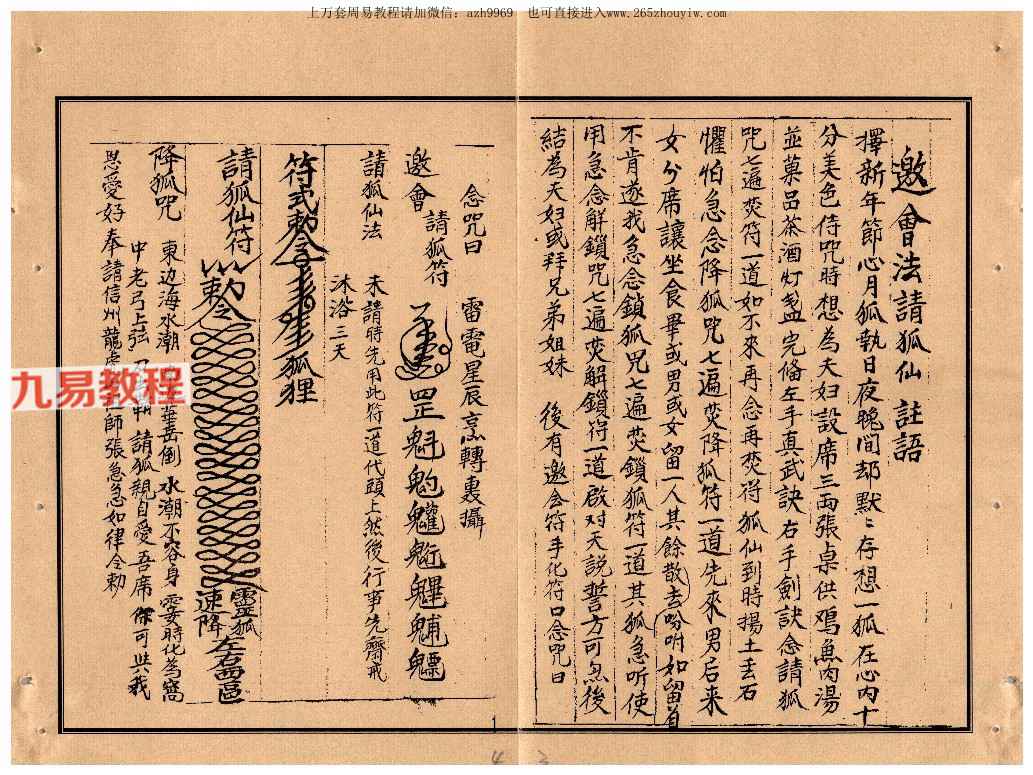 上万套周易教程请加微信：azh9969　也可直接进入www.265zhouyiw.com
邀會法請狐仙　註語
擇新年節心月狐執日夜晚间却默〻存想一狐在心内十
分美色侍咒時想為夫妇設席三両張桌供鸡魚肉湯
並菓品茶酒灯盏完俻左手真武訣右手劍訣念請狐
咒七遍焚符一道如不來再念再焚符狐仙到時揚土丢石
懼怕急念降狐咒七遍焚降狐符一道先來男后来
女分席讓坐食畢或男或女留一人其餘散去吩咐如留首
不肯遂我急念鎖狐咒七遍焚鎖狐符一道其狐急听使
用急念解鎖咒七遍焚解鎖符一道啟对天説誓方可急後
結為夫妇或拜兄弟姐妹　後有邀会符手化符口念咒曰
念咒曰　雷電星辰烹轉裏攝
邀會　請狐符　罡魁
請狐仙法　未請時先用此符一道代頭上然後行事先齋戒
沐浴三天
符式勅令　狐狸
請狐仙符　勅令　靈狐速降　左右
降狐咒　東边海水潮　華岳倒　水潮不容身　霎時化為窩
中老弓上弦　請狐親自愛吾席　你可些我
恩愛好奉請信州龍虎　師張急急如律令勅
九易教程
1
4 3